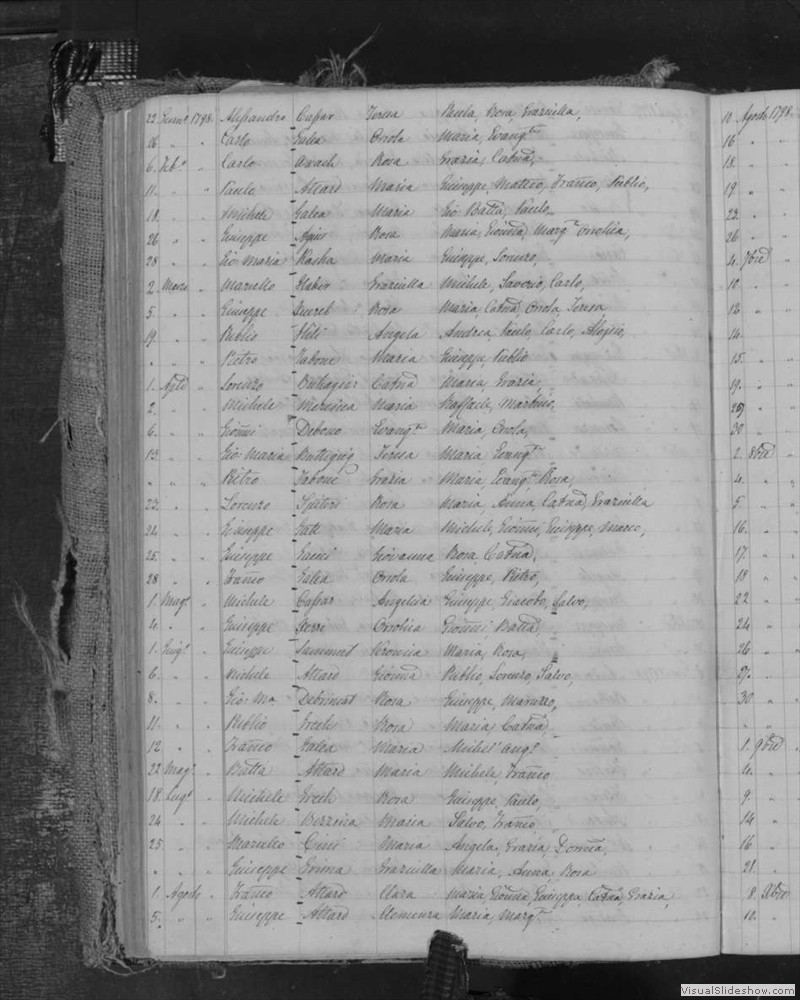 22 Genn.o 1798. Alessandro Caffar Teresa Paula, Rosa, Graziulla,
16 " " Carlo Galea Orsola Maria, Evang.ta
6. Feb.o " Carlo Rosa Grazia, Catña,
11. " " Paulo Attard Maria Giuseppe, Matteo, Franco, Publio,
18. " " Michele Galea Maria Gio Batta, Paulo,
26 " " Giuseppe Agius Rosa Maria, Gioñna, Marg.ta
28 " " Gio Maria Maria Giuseppe, Lonzo,
2. Marzo " Marcello Graziulla Michele, Saverio, Carlo,
5. " " Giuseppe Buret Rosa Maria, Catña, Orsola, Teresa,
19. " " Publio Angela Andrea, Paulo, Carlo, Aloisio,
" " " Pietro Tabone Maria Giuseppe, Publio
1. Aple " Lorenzo Buttagier Catña Maria, Grazia,
2. " " Michele Maria Raffaele, Martino,
6. " " Gioñni Debono Evang.ta Maria, Orsola,
13. " " Gio Maria Buttigieg Teresa Maria Evang.ta
" " " Pietro Tabone Grazia Maria, Evang.ta Rosa,
22. " " Lorenzo Spiteri Rosa Maria, Anna, Catña, Graziulla
24. " " Giuseppe Gatt Maria Michele, Gioñni, Giuseppe, Marco,
25. " " Giuseppe Giovanna Rosa Catña,
28 " " Franco Galea Orsola Giuseppe, Pietro,
1. Mag.o " Michele Caffar Angelica Giuseppe, Giacobo, Salvo,
4. " " Giuseppe Gioñni Batta
1. Giug.o " Giuseppe Sammut Veronica Maria, Rosa,
6. " " Michele Attard Gioñna Publio, Lorenzo, Salvo,
8. " " Gio: Ma. Debrincat Rosa Giuseppe, Maruzzo,
11. " " Publio Grech Rosa Maria, Catña
12 " " Franco Galea Maria Michel' Ang.o
22 Mag.o " Batta Attard Maria Michele, Franco
18. Lug.o " Michele Grech Rosa Giuseppe, Paulo,
24 " " Michele Bezzina Maria Salvo, Franco
25 " " Cini Maria Angela, Grazia,
" " " Giuseppe Grima Graziulla Maria, Anna Rosa
1. Agosto " Franco Attard Clara Maria, Gioñna, Giuseppa, Catña, Grazia,
5. " " Giuseppe Attard Clemenza Maria, Marg.ta
10 Agosto 1798.
16 " "
18. " "
19. " "
22. " "
26 " "
4. 7bre "
10. " "
12 " "
14. " "
15. " "
19. " "
" "
30 " "
2. 8bre "
4. " "
5. " "
16. " "
17. " "
18 " "
22 " "
24 " "
26 " "
27. " "
30 " "
" " "
1. 9bre "
4. " "
9. " "
14 " "
16 " "
21. " "
8. Xbre
10. " "
VisualSlideshow.com